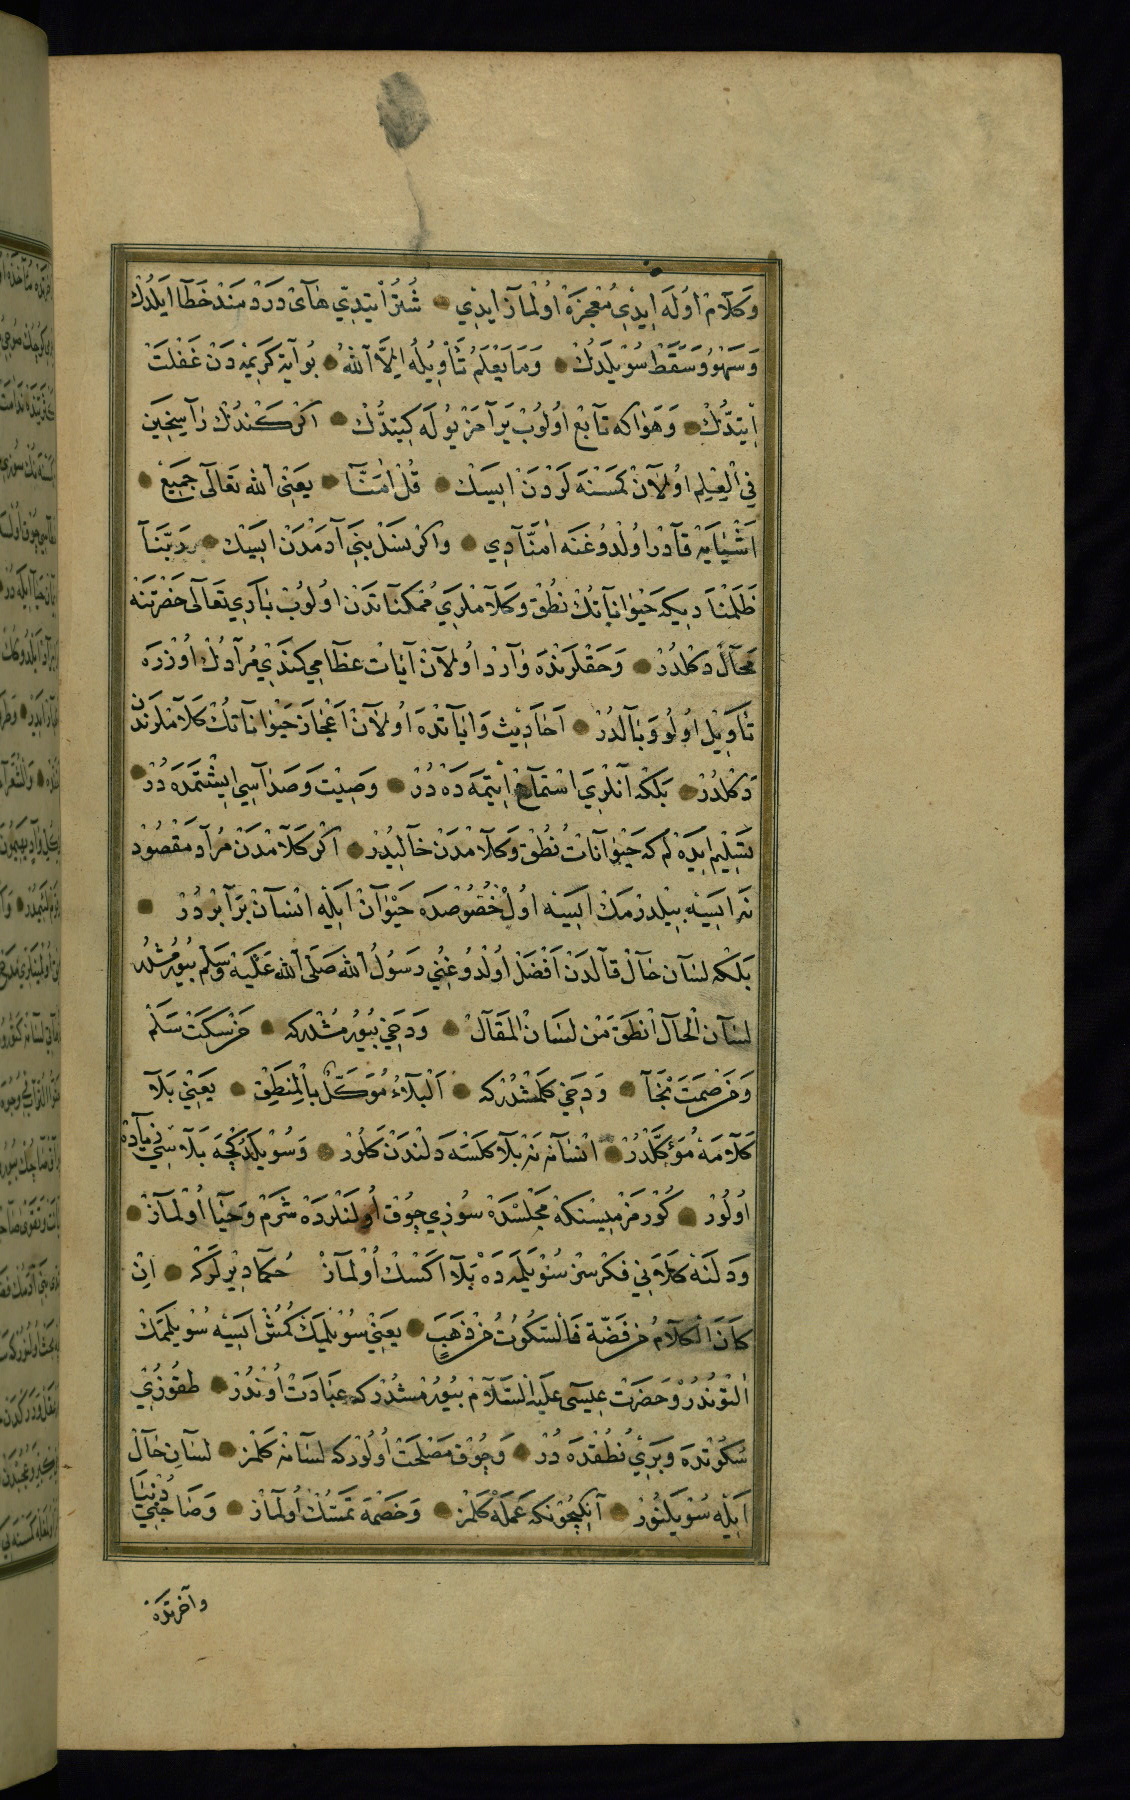 وَكَلَامْ اُولَه اِيدِي مُعْجِزَهْ اُولْمَازْ ايدِي ● شُتُرْ اَيْتدِي هَاىْ دَرْدْمَنْدْ خَطَا اَيلَدُكْ
وَسَهْوُ وَسَقَطْ سُوْيلَدُكْ ● وَمَا يَعْلَمُ تَأْوِيلَهُ اِلَّا اللّٰهُ ● بُو آيَة كَرِيمَه دَنْ غَفْلَتْ
اِيتدُّكْ ● وَهَوَاكه تَابِعْ اُولُوبْ يَرَامَزْ يُولَه كِيتدُّكْ ● اكَرْ كَنْدُكْ رَاسِخِينَ
فِي الْعِلْمِ اُولَانْ كمَسْنَه لَرْدَنْ ايسَكْ ● قُلْ اٰمَنَّا ● يَعْنِي اللّٰه تَعَالَى جَمِيعْ ●
اَشْيَايَه قَادِرْ اُولْدُوغنَه اٰمَنَّا دِي ● وَاكَرْ نَسْلْ بَنِي آدَمْدَنْ ايسَكْ ● رَبَّنَا
ظَلَمْنَا دِيكه حَيْوَانَاتُكْ نُطْق وَكَلَامْلَرِي مُمْكِنَاتدَنْ اُولُوبْ بَارِي تَعَالَى حَضْرَتنَه
مُحَالْ دكْلدُرْ ● وَحَقْلَرنْدَه وَارِدْ اُولَانْ آيَاتْ عِظَامِي كَنْدِي مُرَادُكْ اُوزْرَه
تَأْوِيلْ اُولُو وَبَالْدُرْ ● اَحَادِيثْ وَآيَاتدَه اُولَانْ اَعْجَاز حَيْوَانَاتُكْ كَلَامْلَرنْدَن
دكْلدُرْ ● بَلكه آنلَرِي اسْتمَاعْ اِيتمَه دَه دُرْ ● وَصِيتْ وَصَدَاسِي ايشتمَدَه دُرْ ●
تَسْلِيم ايدَه لم كه حَيْوَانَاتْ نُطْق وَكَلَامْدَنْ خَاليدُرْ ● اكَرْ كَلَامْدَنْ مُرَاد مَقْصُودْ
نَه ايسَه بيلدرْمَكْ ايسَه اُولْ خُصُوصْدَه حَيْوَانْ ايلَه انْسَانْ بَرَابَرْدُرْ ●
بَلكه لسَان حَالْ قَالْدَنْ اَفْضَلْ اُولْدُوغنِي رَسُولُ اللّٰه صَلَّى اللّٰه عَلَيْهْ وَسَلَّم بيُورْمُشْلَرْ
لسَانِ الْحَالْ اَنْطَقْ مَنْ لسَانْ الْمَقَالْ ● وَدَخِي بيُورْمُشْلَر كه ● مَنْ سَكَتَ سَلَمْ
وَمَنْ صَمَتَ نَجَا ● وَدَخِي كَلمشْدُرْ كه ● اَلْبَلَاءُ مُوَكَّلٌ بِالْمَنْطِقْ ● يَعْنِي بَلَا
كَلَامَه مُوَكَّلْدُرْ ● انْسَانَه نَه بَلَا كَلسَه دلنْدَنْ كَلُورْ ● وَسُويلَدُكْجَه بَلَاسِي زيَادَه
اُولُورْ ● كُورمَزْ ميسنكه مَجْلسْدَه سُوزِي چُوق اُولَنلَرْدَه شَرْم وَحَيَا اُولْمَازْ ●
وَدلنَه كَلَانِي فكْرسزْ سُويلَمَه دَه بَلَا اَكْسكْ اُولْمَازْ حُكَمَا ديرلَر كه ● انْ
كَانَ الْكَلَامُ مِنْ فضَّة فَالسُّكُوتُ مِنْ ذَهَبٍ ● يَعْنِي سُويلمَكْ كُمُشْ ايسَه سُويلَمَمَكْ
اَلتُونْدُرْ وَحَضَرَتْ عِيسَى عَلَيْهِ السَّلَامْ بيُورْمشْدُرْ كه عبَادَتْ اُونْدُرْ ● طقُوزِي
سُكُوتدَه وَبرِي نُطْقدَه دُرْ ● وَچُوق مَصْلَحَتْ اُولُورْ كه لسَانَه كَلْمَزْ ● لسَانِ حَالْ
ايلَه سُويلَنُورْ ● آنكچُونكه عَمَلَه كَلْمَزْ ● وَخَصْمَه تَمَسُّكْ اُولْمَازْ ● وَصَاحبِي دُنْيَا
وآخرتده